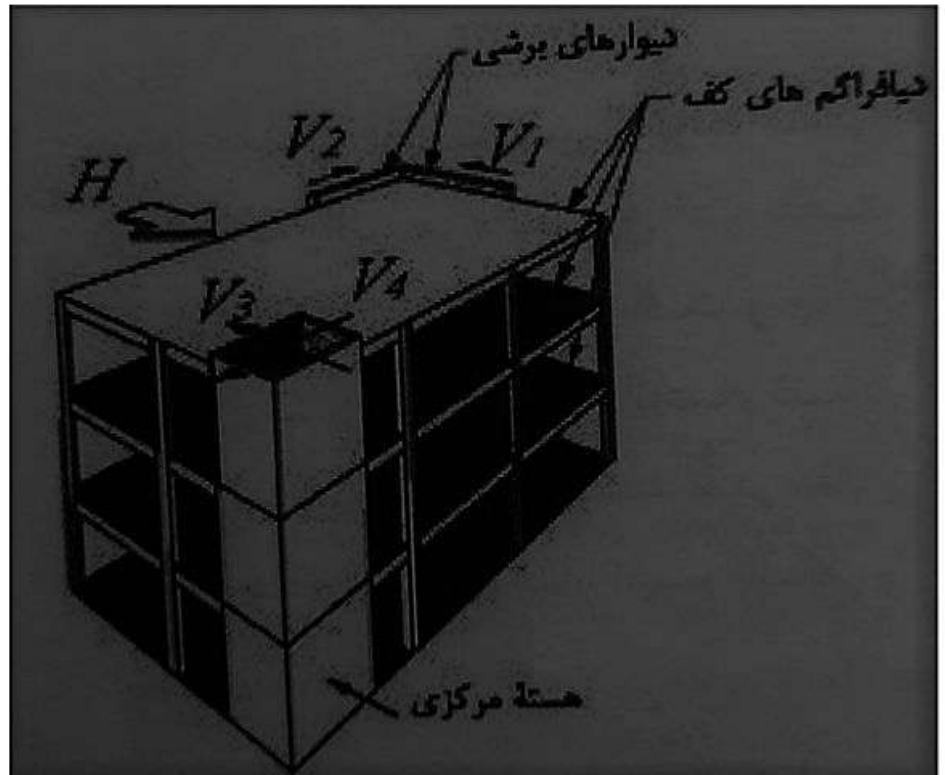 دیوارهای برشی
دیافراگم های کف
V2
V1
H
V3
V4
هستۀ مرکزی